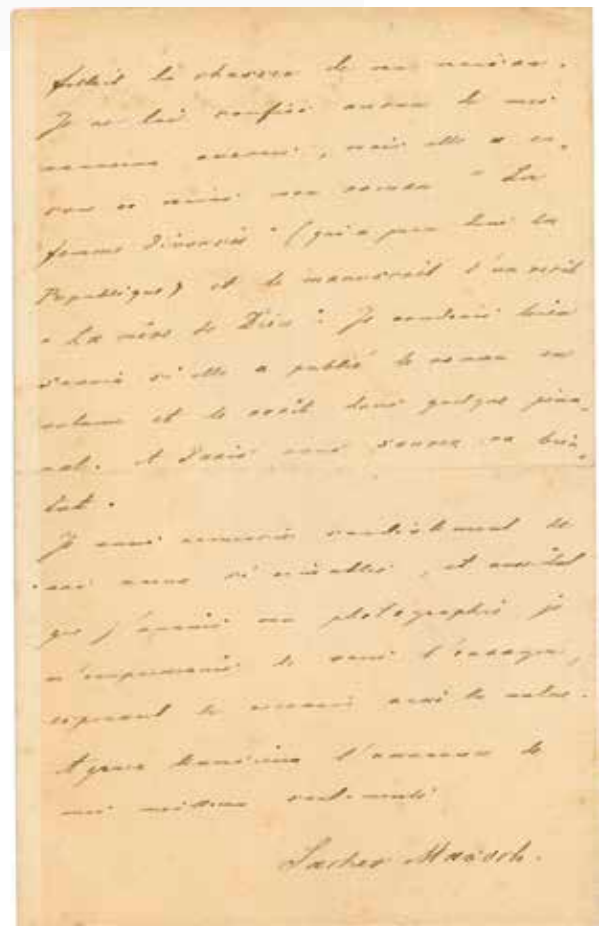 la chasser de ma maison.
Je ne lui confie aucun de mes
mais elle a en-
core en mains mon roman " La
femme divorcée " (qui a paru dans la
République) et le manuscrit d'un récit
" La mère de Dieu ". Je voudrais bien
savoir si elle a publié le roman en
volume et le récit dans quelque jour-
nal. A Paris vous saurez
Je vous remercie cordialement de
si aimables, et aussitôt
que j'aurai ma photographie je
m'empresserai de vous l'envoyer,
espérant de recevoir aussi la votre.
Agréez Monsieur l'assurance de
mes meilleurs sentiments
Sacher Masoch.